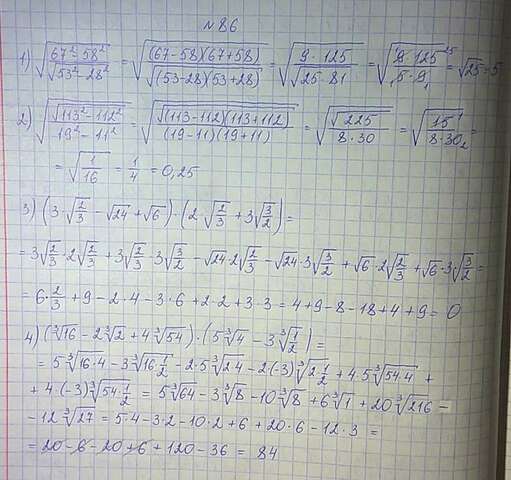 №86
1) √((67²-58²)/√(53²-28²)) = √((67-58)(67+58)/√((53-28)(53+28))) = √(9·125/√(25·81)) = √(9·125/(5·9)) = √25 = 5
2) √(√(113²-112²)/(19²-11²)) = √(√((113-112)(113+112))/((19-11)(19+11))) = √(√225/(8·30)) = √(15/(8·30)) =
= √(1/16) = 1/4 = 0,25
3) (3·√(2/3) - √24 + √6)·(2√(2/3) + 3√(3/2)) =
= 3√(2/3)·2√(2/3) + 3√(2/3)·3√(3/2) - √24·2√(2/3) - √24·3√(3/2) + √6·2√(2/3) + √6·3√(3/2) =
= 6·2/3 + 9 - 2·4 - 3·6 + 2·2 + 3·3 = 4+9-8-18+4+9 = 0
4) (∛16 - 2∛2 + 4∛54)·(5∛4 - 3∛(1/2)) =
= 5∛(16·4) - 3∛(16·1/2) - 2·5∛(2·4) - 2·(-3)∛(2·1/2) + 4·5∛(54·4) +
+ 4·(-3)∛(54·1/2) = 5∛64 - 3∛8 - 10∛8 + 6∛1 + 20∛216 -
- 12∛27 = 5·4 - 3·2 - 10·2 + 6 + 20·6 - 12·3 =
= 20-6-20+6+120-36 = 84